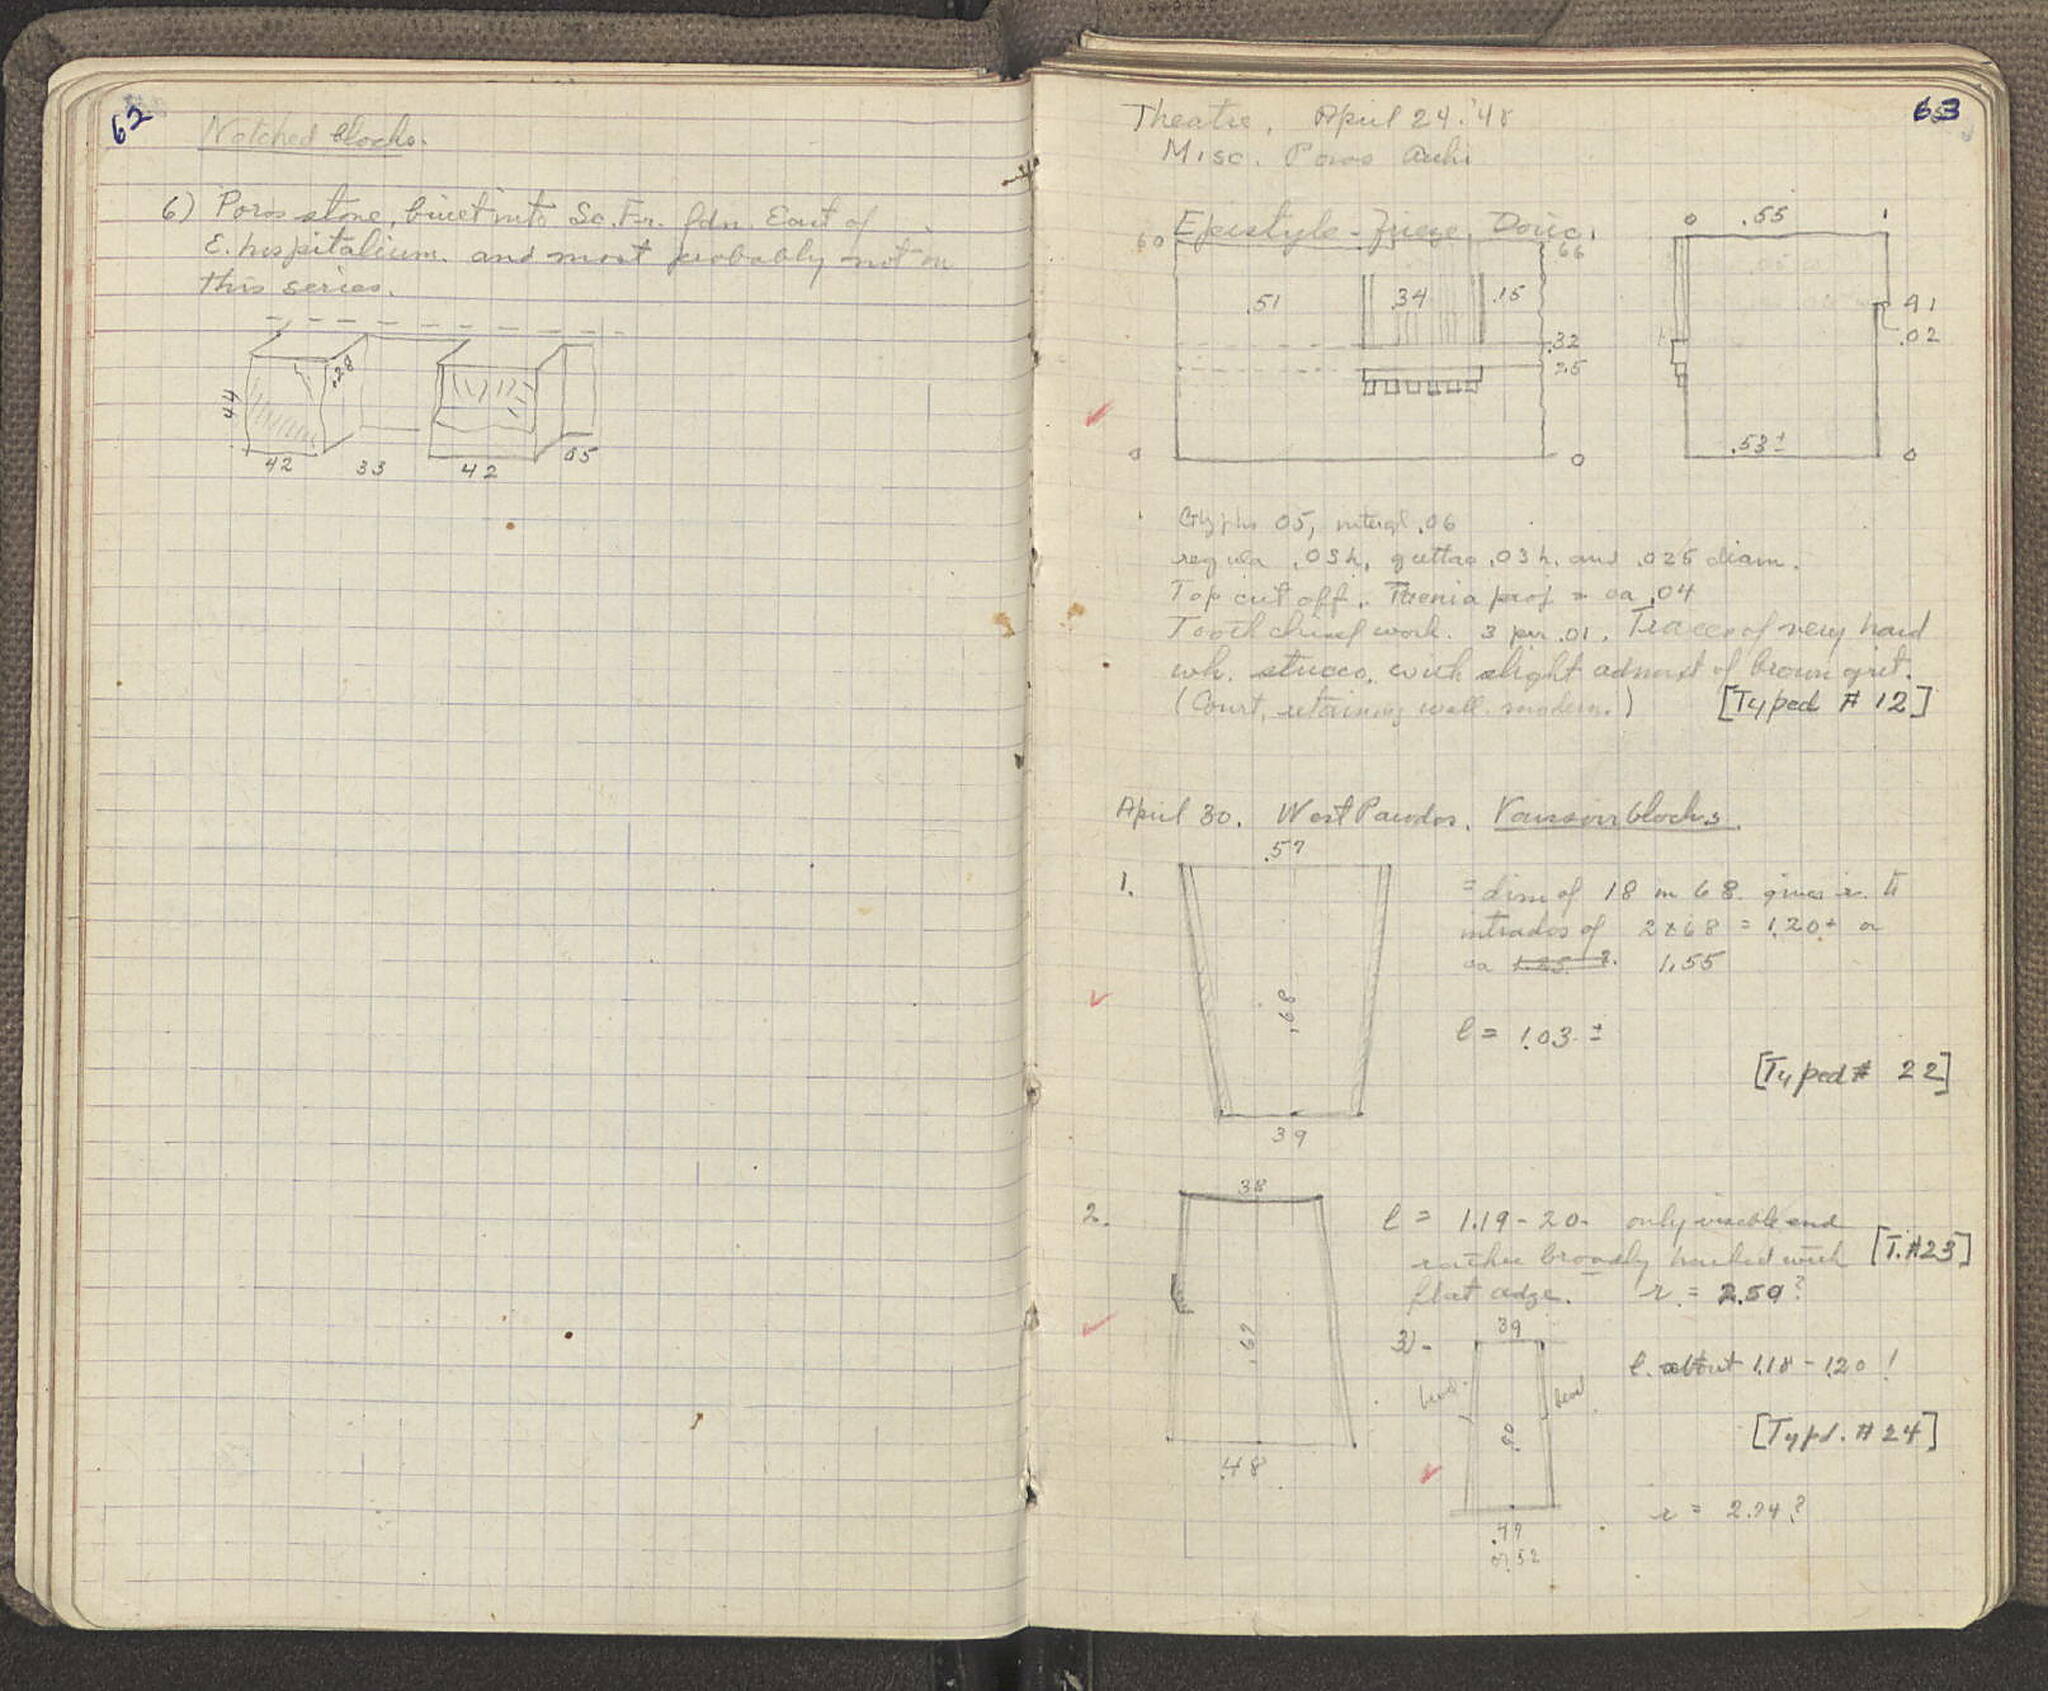 62
Notched blocks.
6) Poros stone, built into Sc. Fr. fdn. East of
E. hospitalium. and most probably not in
this series.
44
.28
42
33
42
05
63
Theatre, April 24. '48
Misc. Poros
Epistyle-frieze, Doric.
60
66
.51
.34
.15
.32
25
0
0
0
.55
1
41
.02
.53±
0
Glyphs 05, .06
regula .03h, guttae .03h. and .025 diam.
Top cut off. Taenia proj = ca .04
Tooth chisel work. 3 per .01. Traces of very hard
wh. stucco. with slight admixt of brown grit.
(Court, retaining wall. modern.) [Typed # 12]
April 30. West Parodos. Voussoir blocks.
1.
.57
.68
39
= dim of 18 in 68. gives
intrados of 2x68 = 1.20+ or
ca 1.55
l = 1.03 ±
[Typed # 22]
2.
38
.62
.48
l = 1.19-20. only visible end
rather broadly hacked with [T.#23]
flat adge. r. = 2.50?
3)-
39
bevel
bevel
.49
or 52
l. about 1.18-1.20!
[Typd. # 24]
r = 2.74?